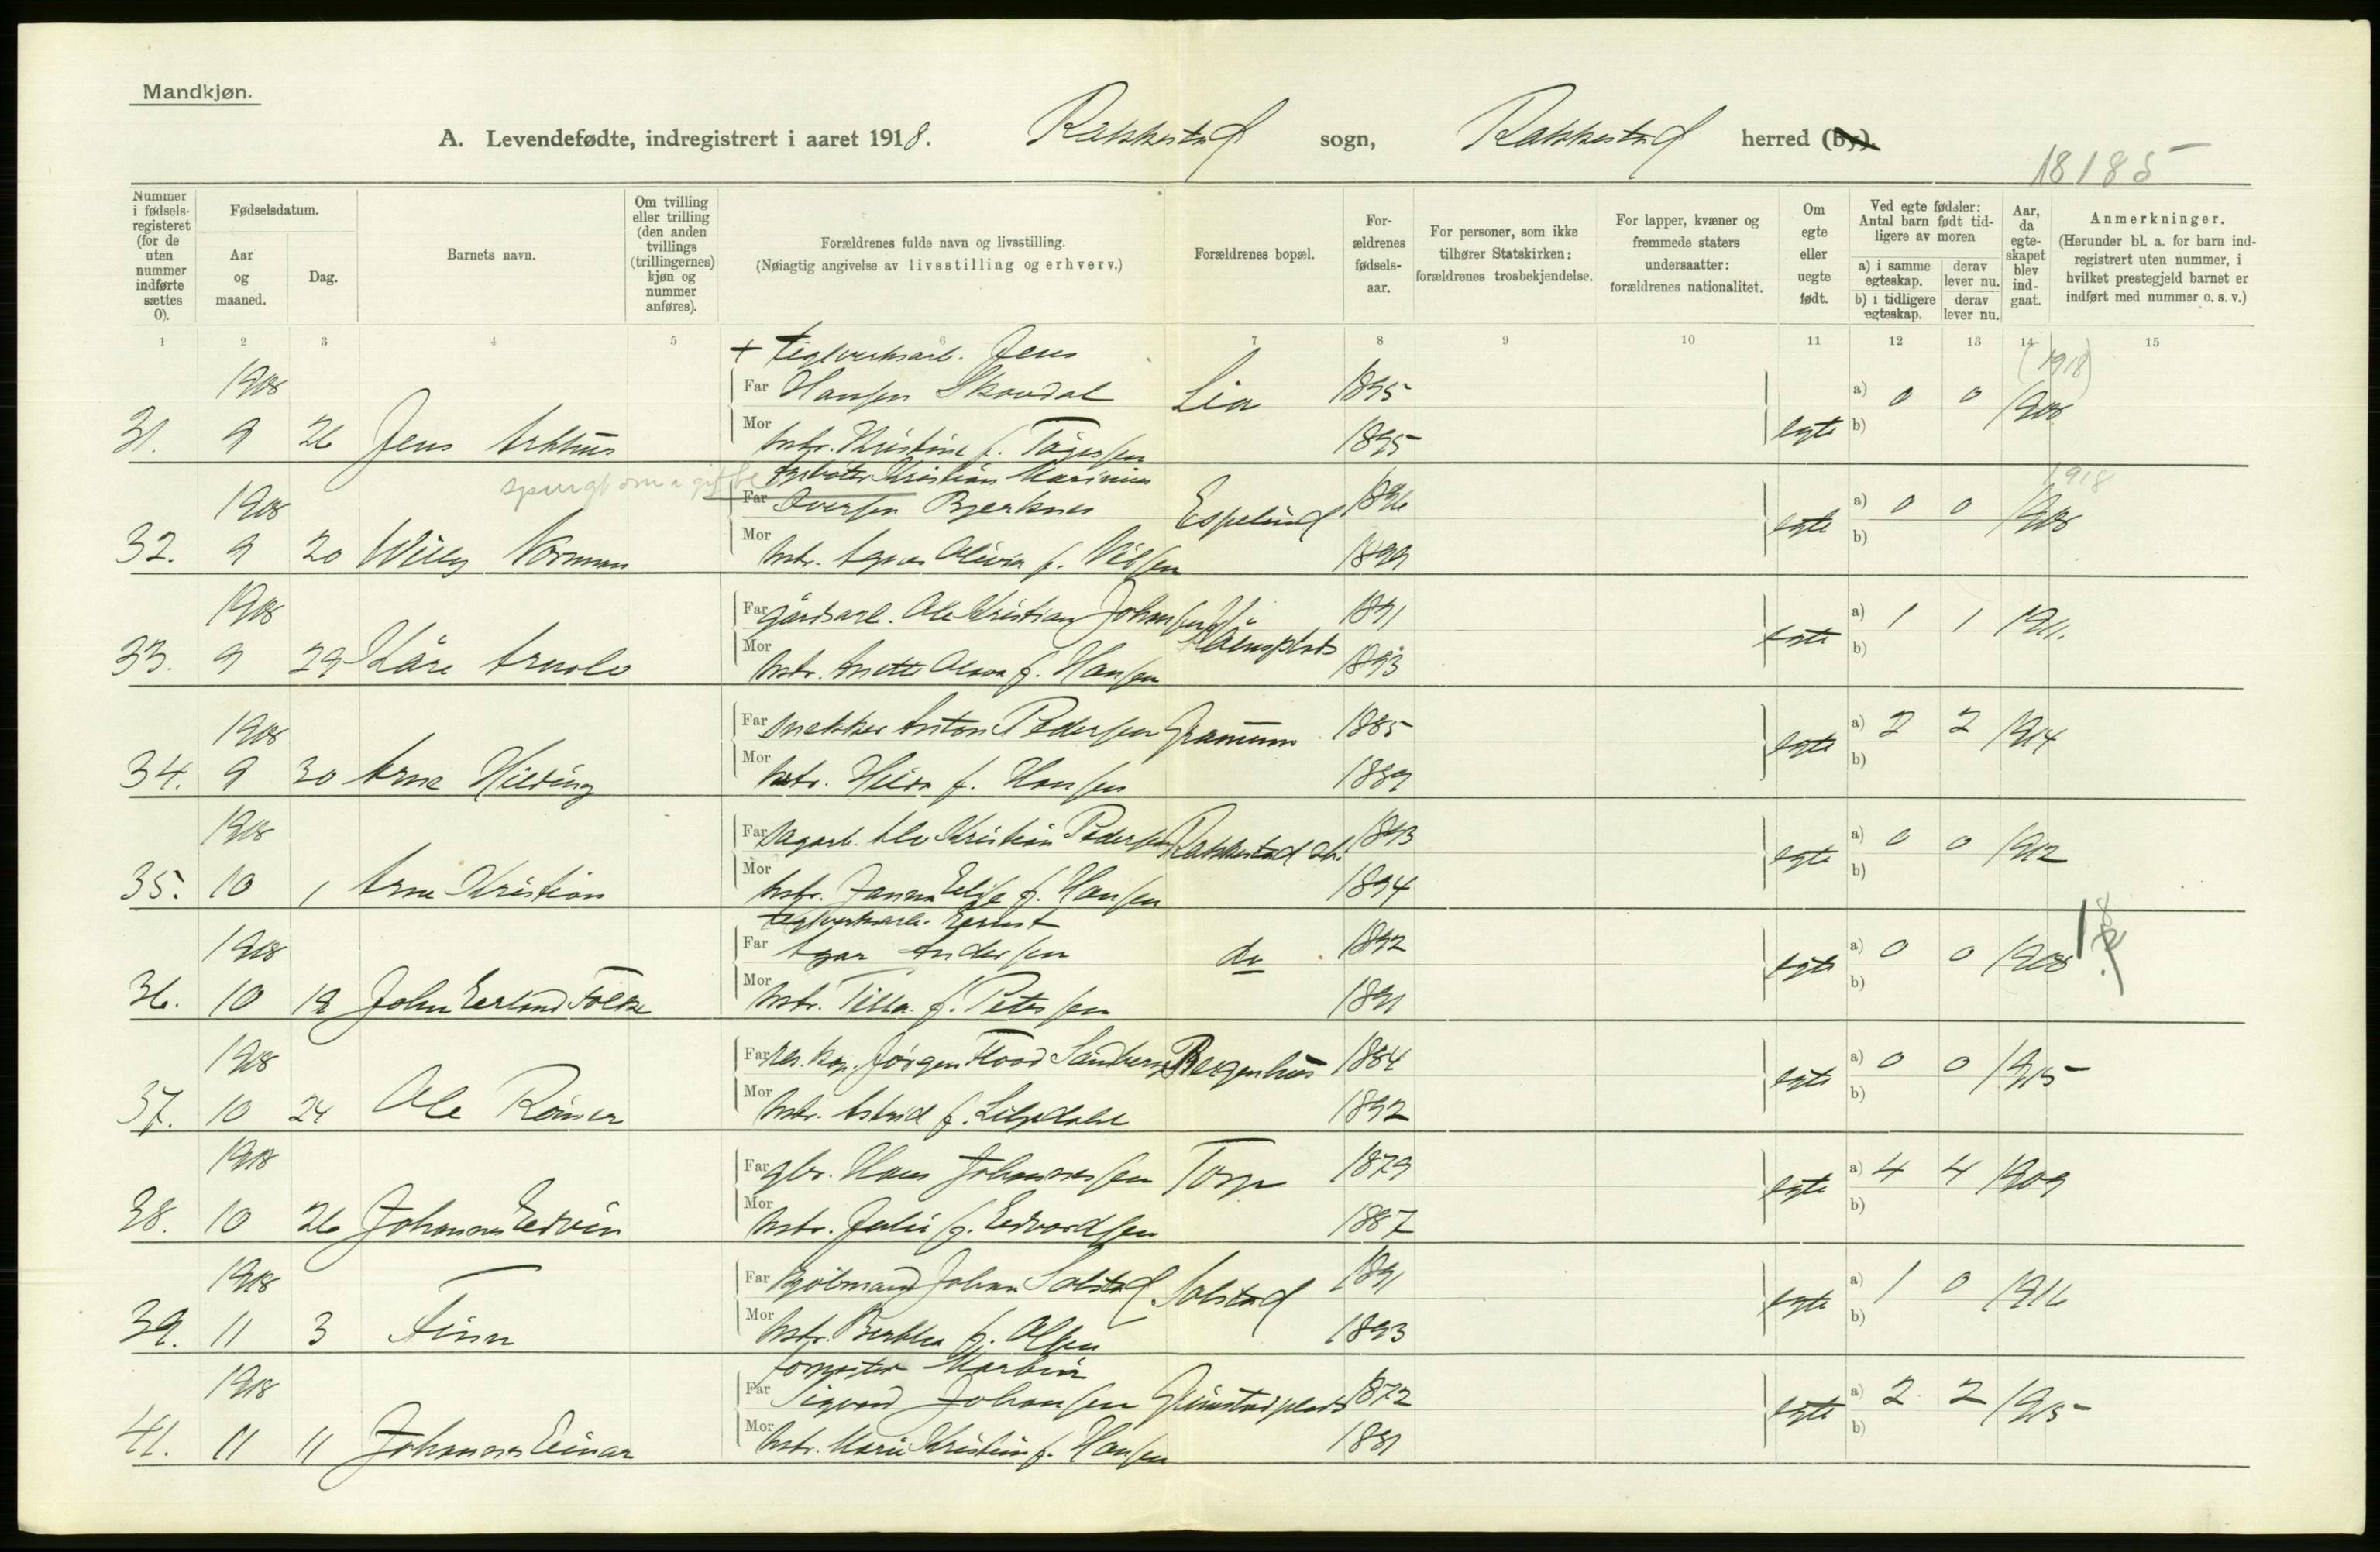 Mandkjøn.
A. Levendefødte, indregistrert i aaret 1918. Rakkestad sogn, Rakkestad herred (by).
18185
Nummer i fødsels-registeret (for de uten nummer indførte sættes 0).
Fødselsdatum.
Aar og maaned.
Dag.
Barnets navn.
Om tvilling eller trilling (den anden tvillings (trillingernes) kjøn og nummer anføres).
Forældrenes fulde navn og livsstilling.
(Nøiagtig angivelse av livsstilling og erhverv.)
Forældrenes bopæl.
For-ældrenes fødsels-aar.
For personer, som ikke tilhører Statskirken: forældrenes trosbekjendelse.
For lapper, kvæner og fremmede staters undersaatter: forældrenes nationalitet.
Om egte eller uegte født.
Ved egte fødsler: Antal barn født tid-ligere av moren
a) i samme egteskap.
derav lever nu.
b) i tidligere egteskap.
derav lever nu.
Aar, da egte-skapet blev ind-gaat.
Anmerkninger.
(Herunder bl. a. for barn ind-registrert uten nummer, i hvilket prestegjeld barnet er indført med nummer o. s. v.)
1 2 3 4 5 6 7 8 9 10 11 12 13 14 15
+ teglverksarb. Jens
1918 Far Hansen Skoudal Lia 1895 a) 0 0 1918 (1918)
31. 9 26 Jens Arthur Mor hstr. Kristine f. egte b) 1895
Kristian Marinius
1918 Far Iversen Bjerknes Espelund 1896 a) 0 0 1918 1918
32. 9 20 Willy Norman Mor hstr. Agnes Olivia f. Nilsen 1899 egte b)
1918 Far gårdsarb. Ole Kristian Johansen 1891 a) 1 1 1911.
33. 9 29 Kåre Arnold Mor hstr. f. Hansen 1893 egte b)
1918 Far snekker Anton Pedersen 1885 a) 2 2 1914
34. 9 30 Arne Hilding Mor hstr. f. Hansen 1889 egte b)
1918 Far Kristian Pedersen Rakkestad st. 1893 a) 0 0 1912
35. 10 1 Arne Kristian Mor hstr. Janna Elise f. Hansen 1894 egte b)
teglverksarb. Ernst
1918 Far Andersen do 1892 a) 0 0 1918
36. 10 19 John Mor hstr. f. Petersen 1891 egte b)
1918 Far res. kap. Jørgen Flood Sandberg Bergenhus 1884 a) 0 0 1915
37. 10 24 Ole Mor hstr. Astrid f. Liljedahl 1892 egte b)
1918 Far gbr. Hans Johannessen Torp 1879 a) 4 4 1909
38. 10 26 Johannes Edvin Mor hstr. Julie f. Edvardsen 1887 egte b)
1918 Far Johan Solstad Solstad 1891 a) 1 0 1916
39. 11 3 Finn Mor hstr. Bertha f. Olsen 1893 egte b)
Martin
1918 Far Sigvard Johansen 1872 a) 2 2 1915
41. 11 11 Johannes Einar Mor hstr. Marie Kristine f. Hansen 1881 egte b)